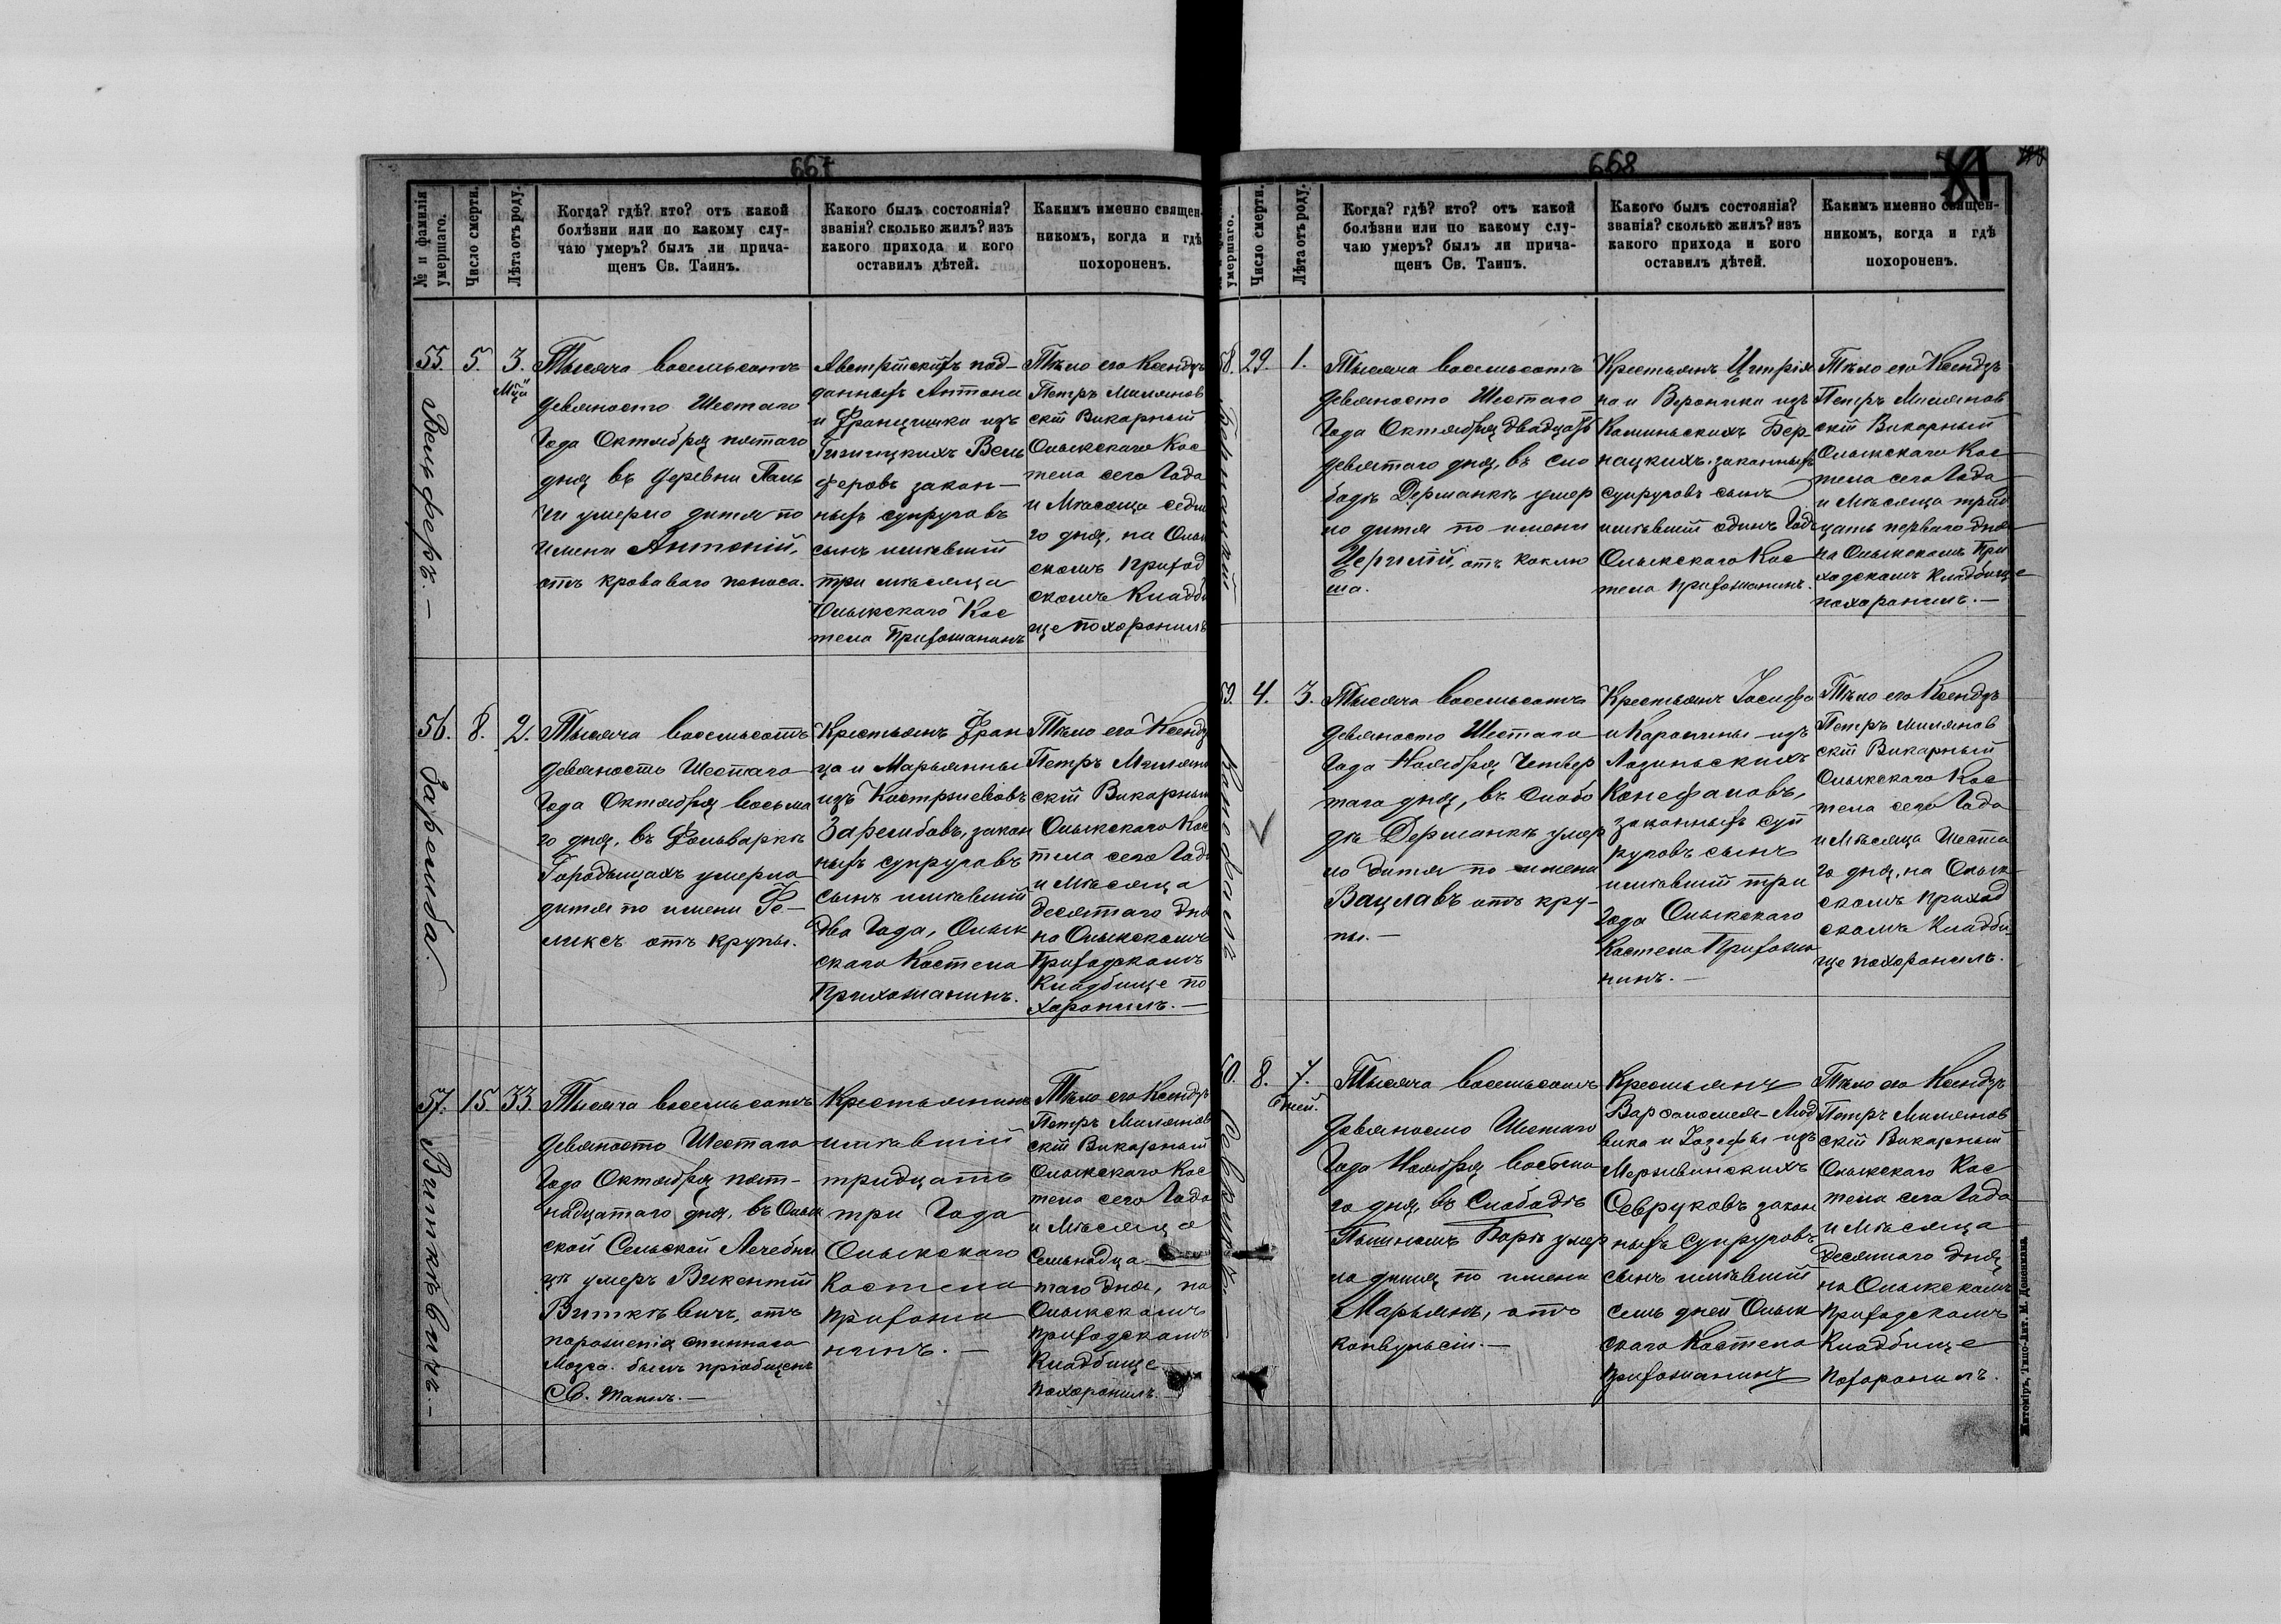 667
№ и фамилія умершаго.
Число смерти.
Лѣта отъ роду.
Когда? гдѣ? кто? отъ какой
болѣзни или по какому слу-
чаю умеръ? былъ ли прича-
щенъ Св. Таинъ.
Какого былъ состоянія?
званія? сколько жилъ? изъ
какого прихода и кого
оставилъ дѣтей.
Какимъ именно священ-
никомъ, когда и гдѣ
похороненъ.
55.
Вельферъ.—
5.
3.
М-ца
Тысяча восемьсотъ
девяносто Шестаго
Года Октября пятаго
дня въ деревни Паль
чи умерло дитя по
имени Антоній,
отъ кроваваго поноса.
Австрійскихъ под-
данныхъ Антона
и Францишки изъ
Вель
феровъ закон-
ныхъ супруговъ
сынъ имѣвшій
три мѣсяца
Олыкскаго Кос
тела Прихожанинъ
Тѣло его Ксендзъ
Петръ Милянов
скій Викарный
Олыкскаго Кос
тела сего Года
и Мѣсяца седма
го дня, на Олык
скомъ приход
скомъ Кладби
ще похоронилъ
56.
Заремба.
8.
2.
Тысяча восемьсотъ
девяность Шестаго
Года Октября восьма
го дня, въ Фольваркѣ
Городыщахъ умерло
дитя по имени Фе-
ликсъ отъ крупы.
Крестьянъ Фран
ца и Марьянны
изъ
Зарембовъ, закон
ныхъ супруговъ
сынъ имѣвшій
два Года, Олык
скаго Костела
Прихожанинъ.
Тѣло его Ксендз
Петръ Милянов
скій Викарный
Олыкскаго Кос
тела сего Года
и Мѣсяца
десятаго дня
на Олыкскомъ
Приходскомъ
Кладбище по
харонилъ.—
57.
Виткѣвичъ.—
15.
33.
Тысяча восемьсотъ
девяносто Шестаго
Года Октября пят-
надцатаго дня, въ Олык
ской Сельской Лечебни
цѣ умеръ Викентій
Виткѣвичъ, отъ
пораженія спиннаго
Мозга. былъ пріобщенъ
Св. Таинъ.—
Крестьянинъ
имѣвшій
тридцать
три Года
Олыкскаго
Костела
прихожа
нинъ.—
Тѣло его Ксендзъ
Петръ Милянов
скій Викарный
Олыкскаго Кос
тела сего Года
и Мѣсяца
Семьнадца
таго дня, на
Олыкскомъ
приходскомъ
Кладбище
похоронилъ.—
668
умершаго.
Число смерти.
Лѣта отъ роду.
Когда? гдѣ? кто? отъ какой
болѣзни или по какому слу-
чаю умеръ? былъ ли прича-
щенъ Св. Таинъ.
Какого былъ состоянія?
званія? сколько жилъ? изъ
какого прихода и кого
оставилъ дѣтей.
Какимъ именно священ-
никомъ, когда и гдѣ
похороненъ.
58.
Бернацкій
29.
1.
Тысяча восемьсотъ
девяносто Шестаго
Года Октября двадцать
девятаго дня, въ сло
бодѣ Дерманкѣ умер
ло дитя по имени
отъ коклю
ша.
Крестьянъ
на и Вероники изъ
Каминьскихъ Бер-
нацкихъ законныхъ
супруговъ сынъ
имѣвшій одинъ Годъ
Олыкскаго Кос
тела прихожанинъ.
Тѣло его Ксендзъ
Петръ Милянов
скій Викарный
Олыкскаго Кос
тела сего Года
и Мѣсяца трид
цать перваго дня
на Олыкскомъ При
ходскомъ Кладбище
похоронилъ.—
59.
4.
3.
Тысяча восемьсотъ
девяносто Шестаго
Года Ноября Четвер
таго дня, въ Слобо
дѣ Дерманкѣ умер
ло дитя по имени
Вацлавъ отъ кру-
пы.—
Крестьянъ Іосифа
и Каролины изъ
Лозиньскихъ
Конефаловъ,
законныхъ суп
руговъ сынъ
имѣвшій три
Года Олыкскаго
Костела Прихожа
нинъ.—
Тѣло его Ксендзъ
Петръ Милянов
скій Викарный
Олыкскаго Кос
тела сего Года
и Мѣсяца Шеста
го дня, на Олык
скомъ приход
скомъ Кладби-
ще похоронилъ.
60.
Севрукъ.
8.
7.
дней.
Тысяча восемьсотъ
девяносто Шестаго
Года Ноября восьма
го дня, въ Слободѣ
Борѣ умер
ло дитя по имени
Марьянъ, отъ
конвульсіи.—
Крестьянъ
Варфоломея-Люд
вика и Іозефы изъ
Севруковъ закон
ныхъ Супруговъ
сынъ имѣвшій
семь дней Олык
скаго Костела
прихожанинъ
Тѣло его Ксендзъ
Петръ Милянов
скій Викарный
Олыкскаго Кос
тела сего Года
и Мѣсяца
десятаго дня,
на Олыкскомъ
приходскомъ
Кладбище
похоронилъ.
Житоміръ, Типо-Лит. М. Дененмана.